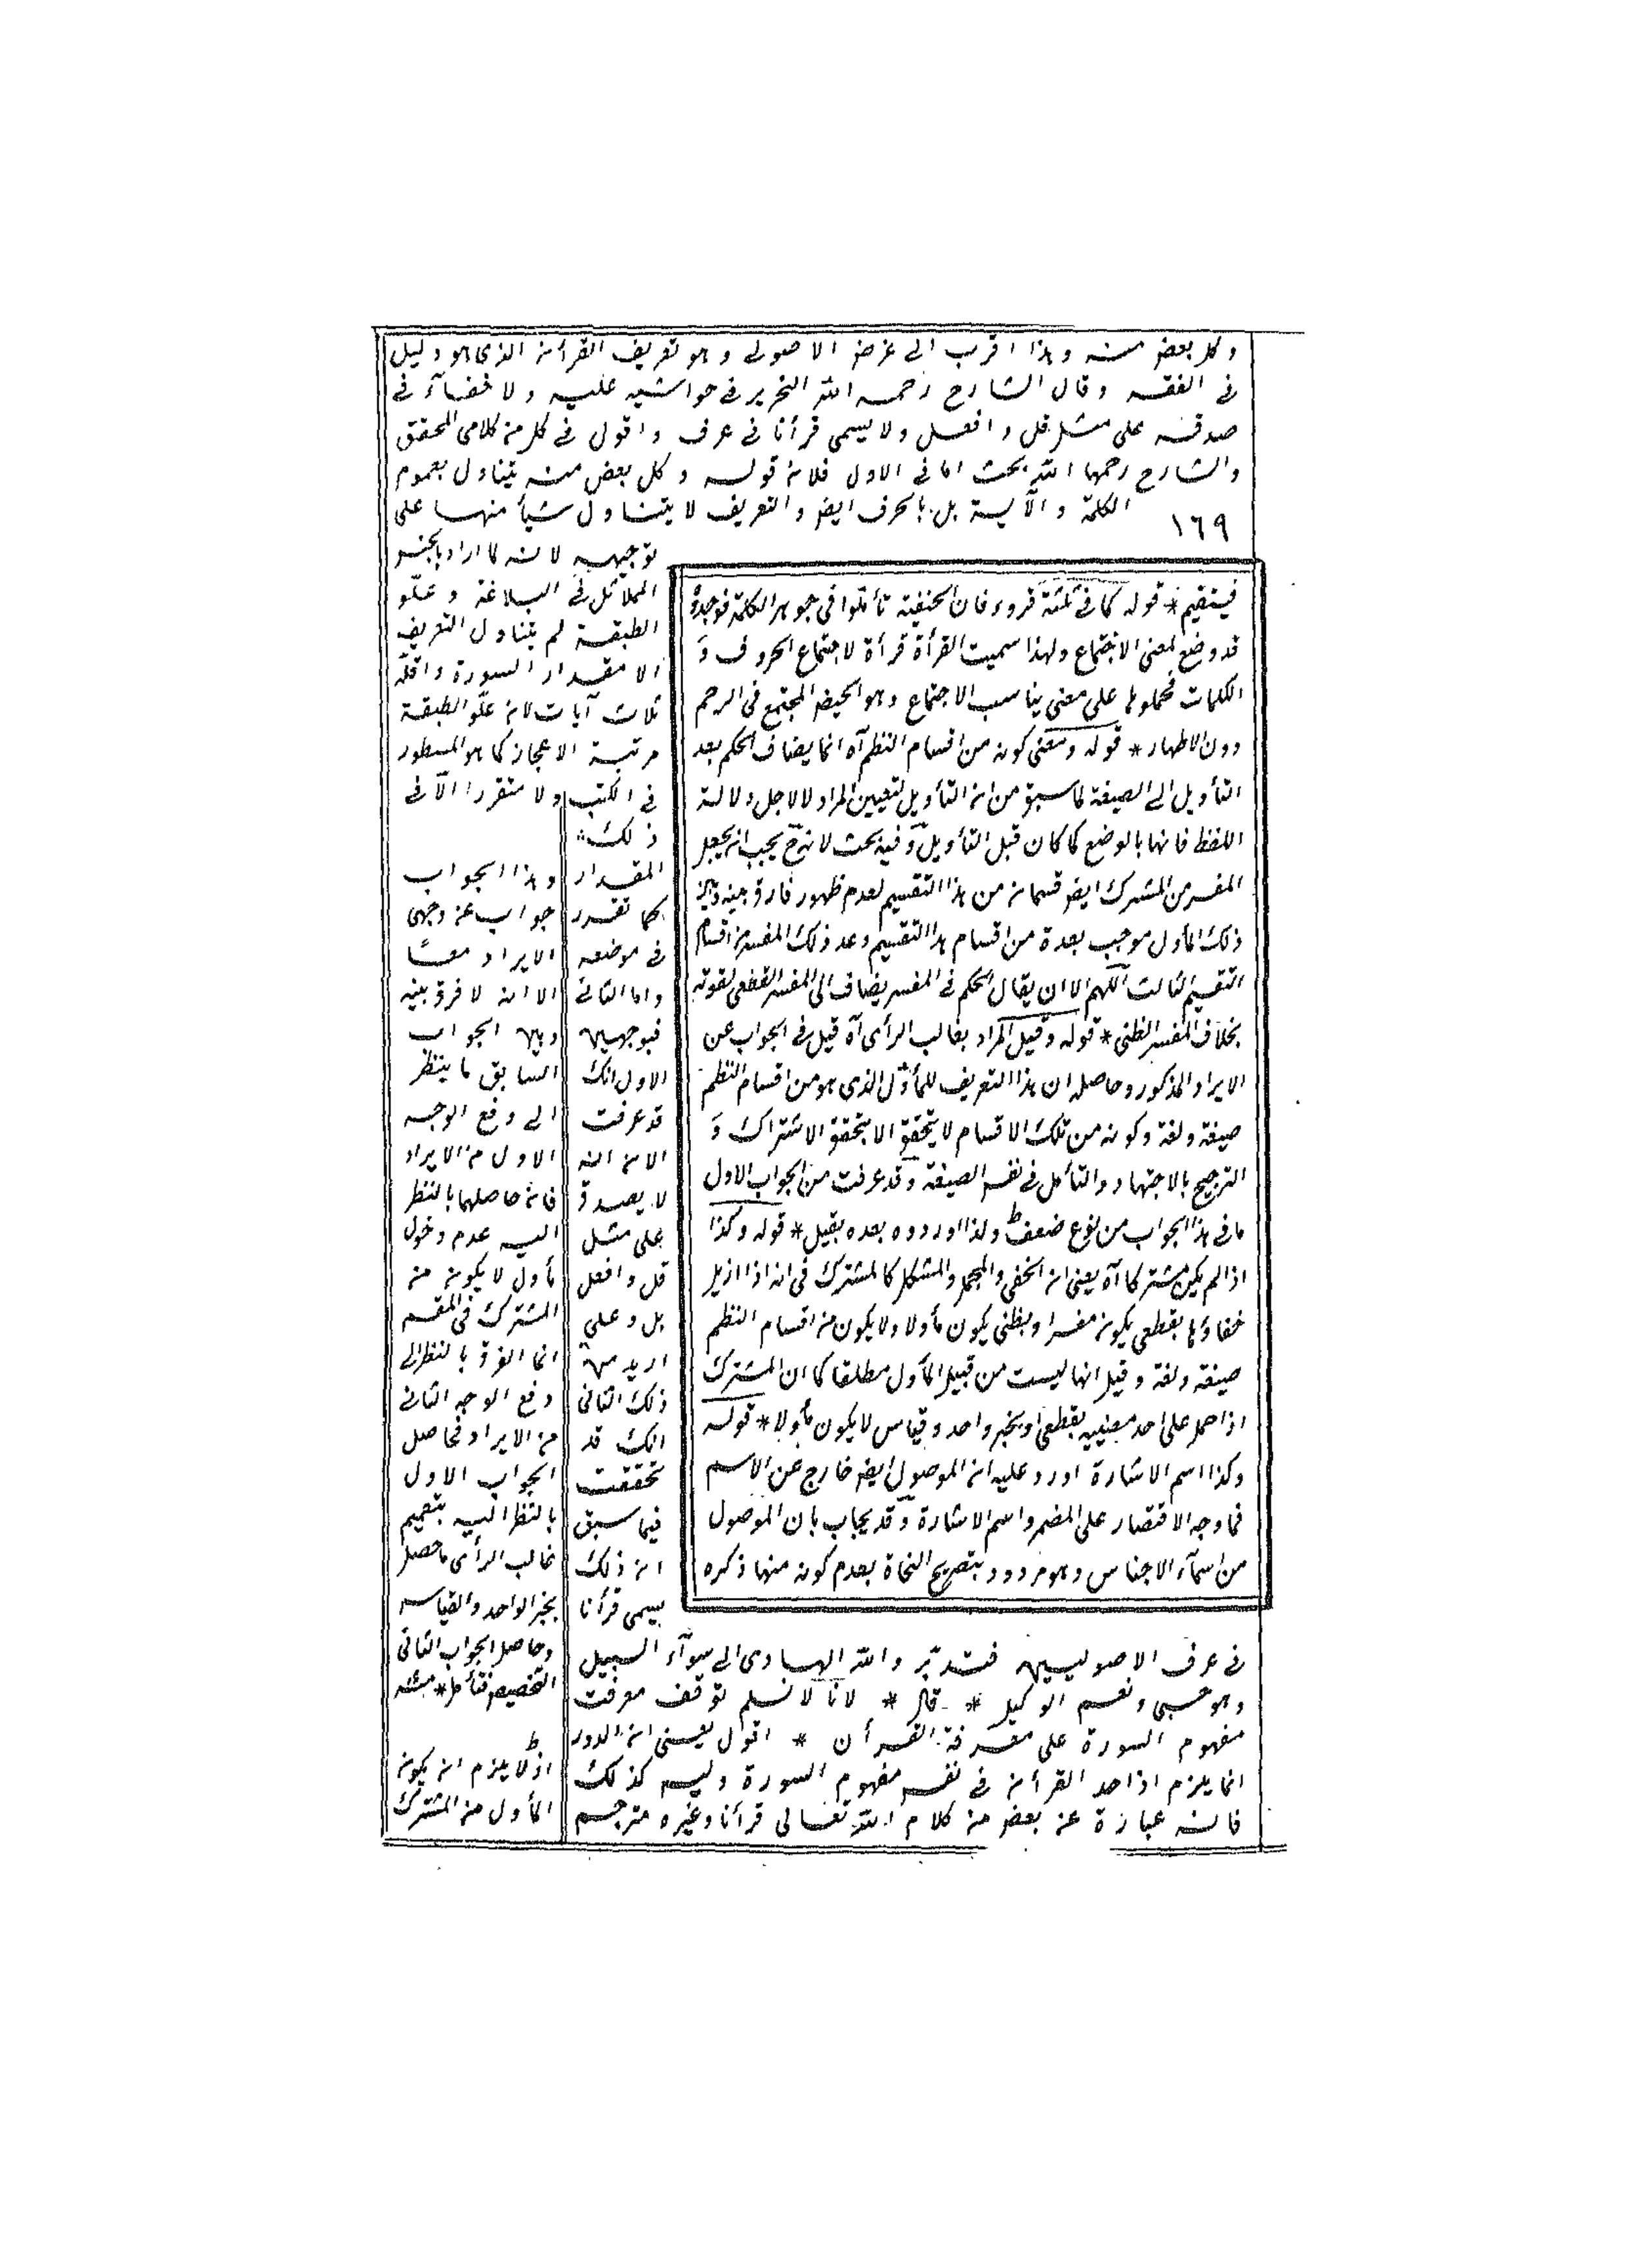 وكل بعض منه وهذا اقرب الى غرض الاصولى وهو تعريف القرأن الذى هو دليل
فى الفقه وقال الشارح رحمه الله النحرير فى حواشيه عليه ولا خفآء فى
صدقه على مثل قل وافعل ولا يسمى قرأنا فى عرف واقول فى كل من كلامى المحقق
والشارح رحمهما الله بحث اما فى الاول فلان قوله وكل بعض منه يتناول بعموم
الكلمة والآية بل بالحرف ايض والتعريف لا يتناول شيأ منها على
١٦٩
توجيهه لانه لما اراد بالجنس
المماثل فى البلاغة وعلو
الطبقة لم يتناول التعريف
الا مقدار السورة واقله
ثلاث آيات لان علو الطبقة
مرتبة الاعجاز كما هو المسطور
فى الكتب ولا متقررا الا فى
ذلك
المقدار
كما تقرر
فى موضعه
واما الثانى
فبوجهين
الاول انك
قد عرفت
الان انه
لا يصدق
على مثل
قل وافعل
بل وعلى
اريد منه
ذلك الثانى
انك قد
تحققت
فيما سبق
ان ذلك
يسمى قرأنا
فى عرف الاصوليين فتدبر والله الهادى الى سوآء السبيل
وهو حسبى ونعم الوكيل * قال * لانا لا نسلم توقف معرفت
مفهوم السورة على معرفة القرأن * اقول يعنى ان الدور
انما يلزم اذا حد القرأن فى نفس مفهوم السورة وليس كذلك
فانه عبارة عن بعض من كلام الله تعالى قرأنا وغيره مترجم
فيستقيم * قوله كما فى ثلثة قروء فان الحنفية تأملوا فى جوهر الكلمة فوجدوه
قد وضع لمعنى الاجتماع ولهذا سميت القرأة قرأة لاجتماع الحروف و
الكلمات فحملوها على معنى يناسب الاجتماع وهو الحيض المجتمع فى الرحم
دون الاطهار * قوله ومعنى كونه من اقسام النظم آه انما يضاف الحكم بعد
التأويل الى الصيغة لما سبق من ان التأويل لتعيين المراد لا لاجل دلالة
اللفظ فانها بالوضع كما كان قبل التأويل وفيه بحث لانه ح يجب ان يجعل
المفسر من المشترك ايض قسما من هذا التقسيم لعدم ظهور فارق بينه وبين
ذلك المأول موجب بعدة من اقسام هذا التقسيم وعد ذلك المفسر من اقسام
التقسيم الثالث اللهم الا ان يقال الحكم فى المفسر يضاف الى المفسر القطعى لقوته
بخلاف المفسر الظنى * قوله وقيل المراد بغالب الرأى آه قيل فى الجواب عن
الايراد المذكور وحاصله ان هذا التعريف للمأول الذى هو من اقسام النظم
صيغة ولغة وكونه من تلك الاقسام لا يتحقق الا بتحقق الاشتراك و
الترجيح بالاجتهاد والتأمل فى نفس الصيغة وقد عرفت من الجواب الاول
ما فى هذا الجواب من نوع ضعف ولذا اوردوه بعده بقيل * قوله وكذا
اذا لم يكن مشتركا آه يعنى ان الخفى والمجمل والمشكل كالمشترك فى انه اذا ازيل
خفاؤها بقطعى يكون مفسرا وبظنى يكون مأولا ولا يكون من اقسام النظم
صيغة ولغة وقيل انها ليست من قبيل المأول مطلقا كما ان المشترك
اذا حمل على احد معنييه بقطعى او بخبر واحد وقياس لا يكون مأولا * قوله
وكذا اسم الاشارة اورد عليه ان الموصول ايض خارج عن الاسم
فما وجه الاقتصار على المضمر واسم الاشارة وقد يجاب بان الموصول
من اسمآء الاجناس وهو مردود بتصريح النحاة بعدم كونه منها ذكره
وهذا الجواب
جواب عن وجهى
الايراد معا
الا انه لا فرق بينه
وبين الجواب
السابق ما ينظر
الى دفع الوجه
الاول من الايراد
فان حاصلهما بالنظر
اليه عدم دخول
مأول لا يكون من
المشترك فى المقسم
انما الفرق بالنظر الى
دفع الوجه الثانى
من الايراد فحاصل
الجواب الاول
بالنظر اليه بتعميم
غالب الرأى ما حصل
بخبر الواحد والقياس
وحاصل الجواب الثانى
التخصيص فتأمل * منه
اذ لا يلزم ان يكون
المأول من المشترك